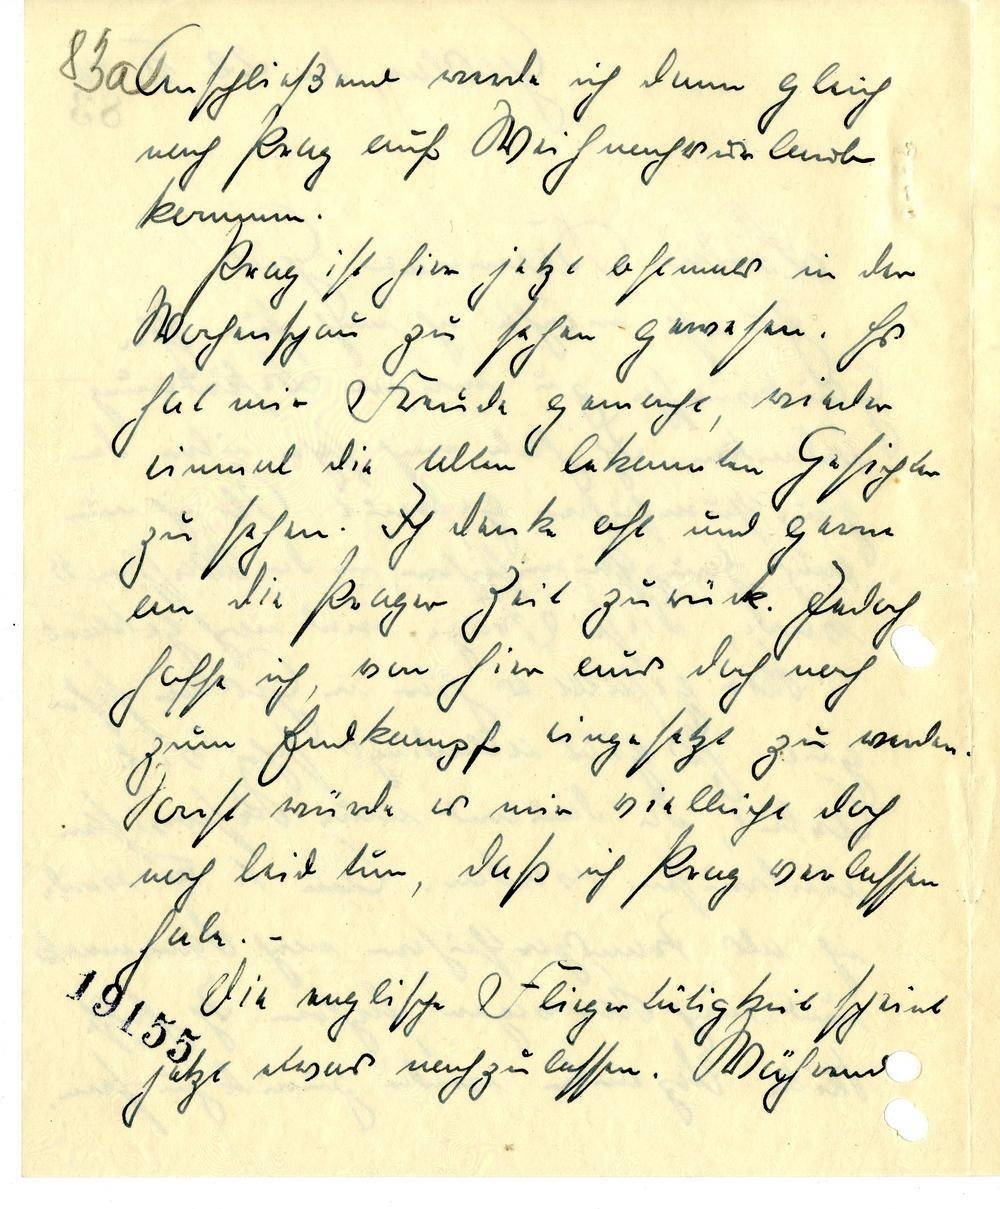 83a
Anschließend werde ich dann gleich
nach Prag auf Weihnachtsurlaub
kommen.
Prag ist hier jetzt oftmals in der
Wochenschau zu sehen gewesen. Es
hat mir Freude gemacht, wieder
einmal die alten bekannten Gesichter
zu sehen. Ich denke oft und gerne
an die Prager Zeit zurück. Jedoch
hoffe ich, von hier aus doch noch
zum Endkampf eingesetzt zu werden.
Sonst würde es mir vielleicht doch
noch leid tun, daß ich Prag verlassen
habe. –
Die englische Fliegertätigkeit scheint
19155
jetzt etwas nachzulassen. Während